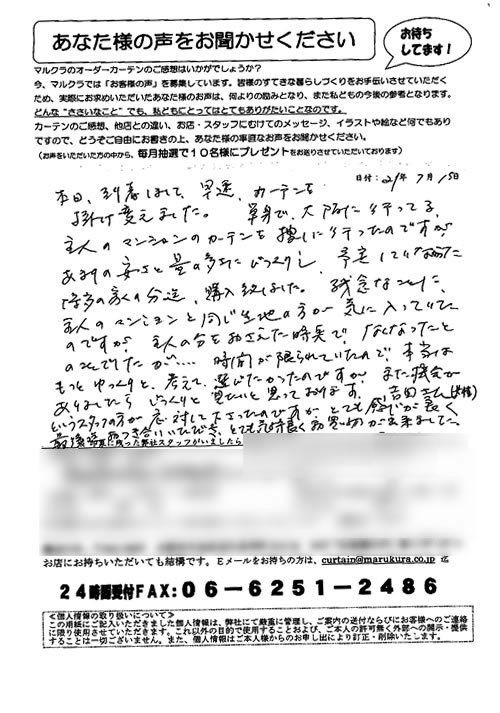 あなた様の声をお聞かせください
お待ち
してます!
マルクラのオーダーカーテンのご感想はいかがでしょうか?
今、マルクラでは「お客様の声」を募集しています。皆様のすてきな暮らしづくりをお手伝いさせていただく
ため、実際にお求めいただいたあなた様のお声は、何よりの励みとなり、また私どもの今後の参考となります。
どんな“ささいなこと”でも、私どもにとってはとてもありがたいことなのです。
カーテンのご感想、他店との違い、お店・スタッフにむけてのメッセージ、イラストや絵など何でもあり
ですので、どうぞご自由にお書きの上、あなた様の率直なお声をお聞かせください。
(お声をいただいた方の中から、毎月抽選で10名様にプレゼントをお送りさせていただいております)
日付:21年 7月15日
本日、到着しまして、早速、カーテンを
掛け変えました。 単身で、大阪に行ってる、
主人のマンションのカーテンを捜しに行ったのですが
あまりの安さと量の多さにびっくりし、予定していなかった
の家の分迄、購入しました。残念なことに、
主人のマンションと同じ生地の方が気に入っていた
のですが 主人の分をおさえた時点で、なくなったと
のことでしたが… 時間が限られていたので、本当は
もっとゆっくりと、考えて、選びたかったのですが また機会が
ありましたら じっくりと見たいと思っております。 吉田さん
というスタッフの方が応対して下さったのですが、とても感じが良く
最後迄おつき合いいただき、とても気持良くお買物が出来ました。
に残った弊社スタッフがいましたら
お店にお持ちいただいても結構です。Eメールをお持ちの方は、curtain@marukura.co.jp 迄
24時間受付FAX:06-6251-2486
<個人情報の取り扱いについて>
この用紙にご記入いただきました個人情報は、弊社にて厳重に管理し、ご案内の送付ならびにお客様へのご連絡
に限り使用させていただきます。これ以外の目的で使用することおよび、ご本人の許可無く外部への開示・提供
することは一切ございません。また、個人情報はご本人様からのお申し出により訂正・削除いたします。